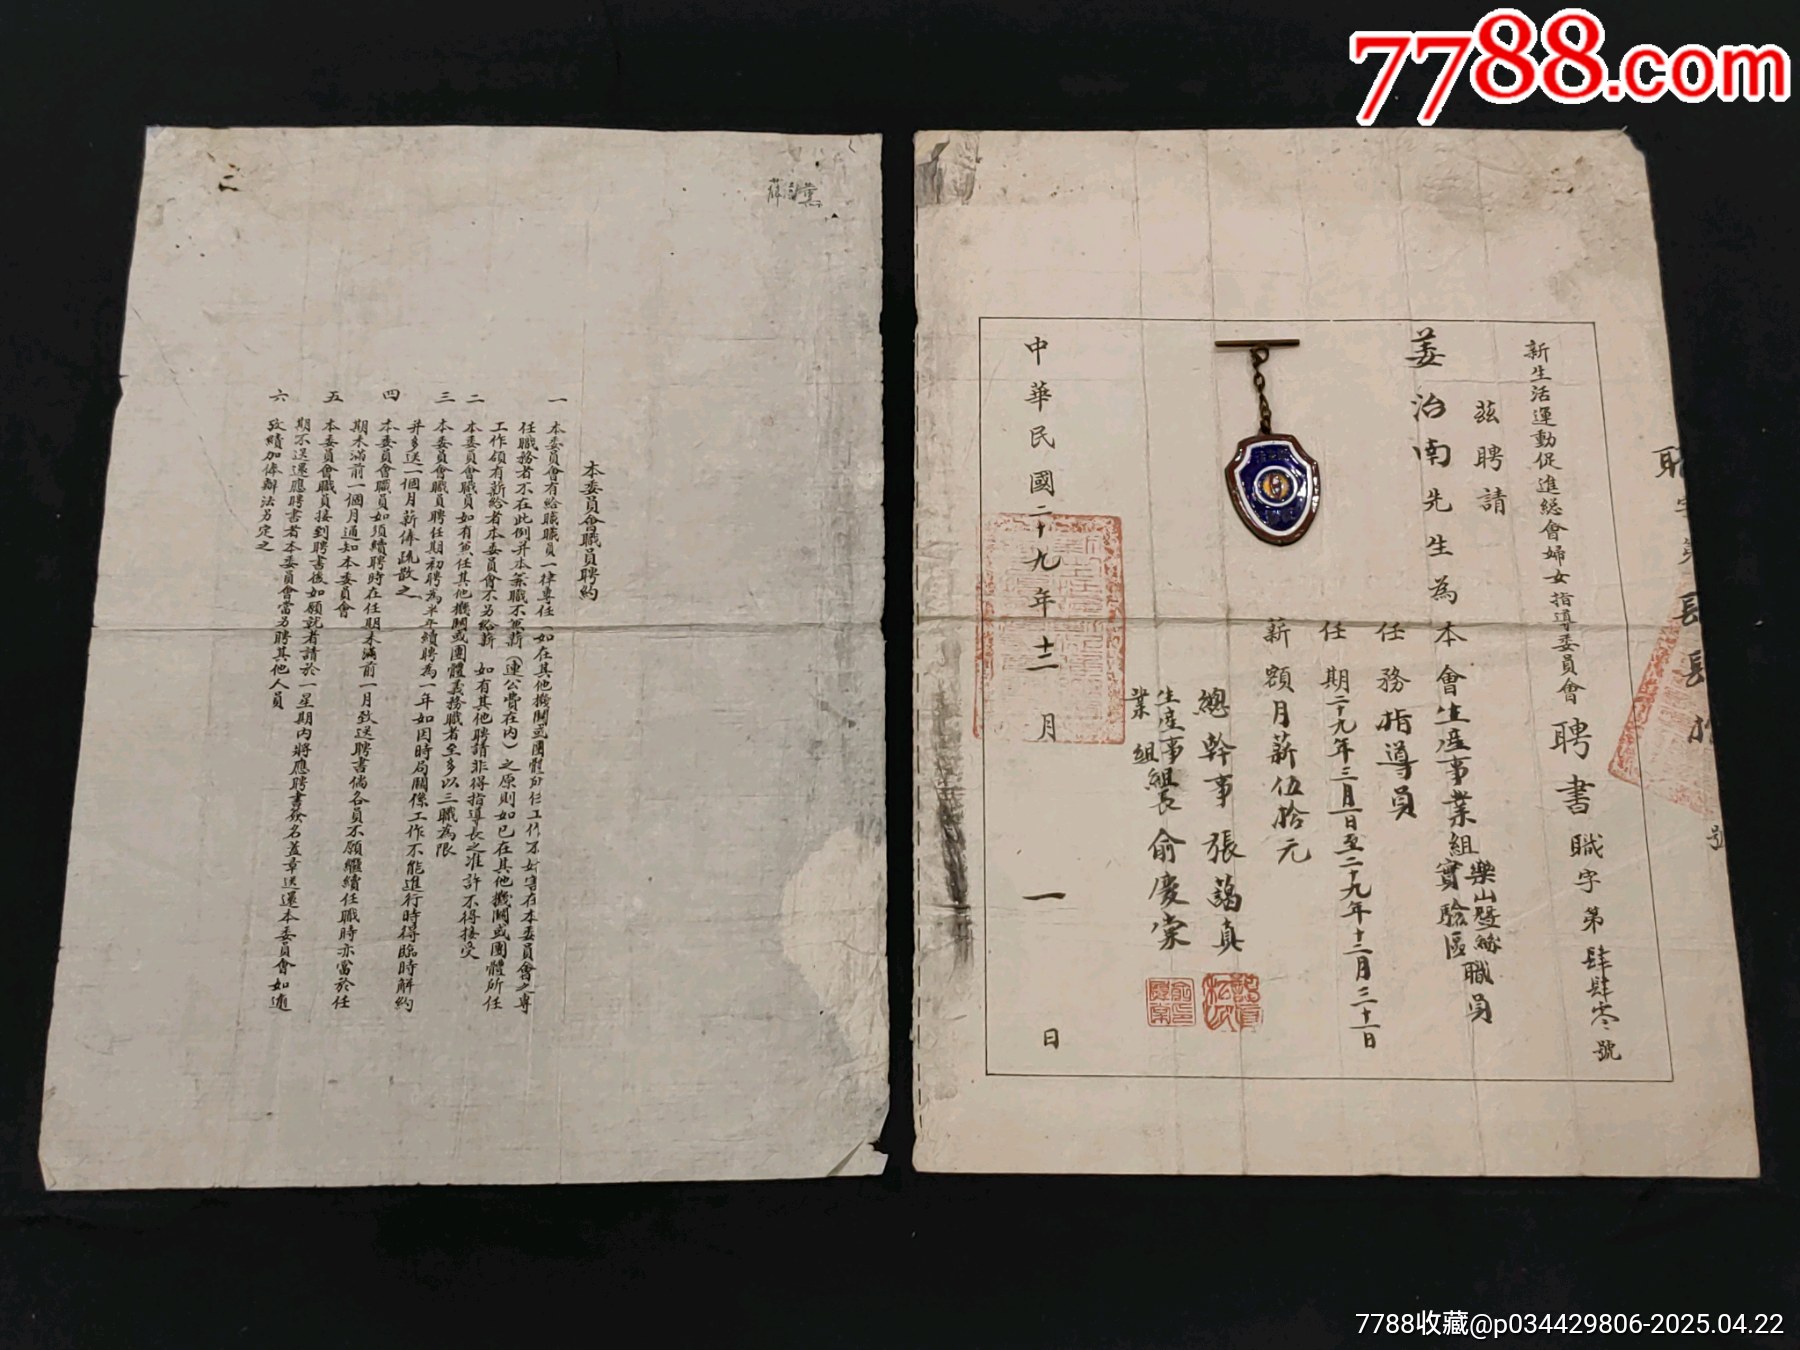 7788.com
新生活運動促進總會婦女指導委員會聘書 職字第肆肆零號
茲聘請
姜治南先生為本會生產事業組樂山蠶絲實驗區職員
任務指導員
任期二十九年三月一日至二十九年十二月三十一日
薪額月薪伍拾元
總幹事 張藹真
生產事業組組長 俞慶棠
中華民國二十九年十二月一日
本委員會職員聘約
一 本委員會有給職職員一律專任(如在其他機關或團體所任工作不妨害在本委員會之專
任職務者不在此例并本兼職不兼薪(連公費在內)之原則如已在其他機關或團體所任
工作領有薪給者本委員會不另給薪
二 本委員會職員如有兼任其他機關或團體義務職者至多以三職為限 如有其他聘請非得指導長之准許不得接受
三 本委員會職員聘任期初聘為半年續聘為一年如因時局關係工作不能進行時得臨時解約
并多送一個月薪俸疏散之
四 本委員會職員如須續聘時在任期未滿前一月致送聘書倘各員不願繼續任職時亦當於任
期未滿前一個月通知本委員會
五 本委員會職員接到聘書後如願就者請於一星期內將應聘書簽名蓋章送還本委員會如逾
期不送還應聘書者本委員會當另聘其他人員
六 攷績加俸辦法另定之
7788收藏@p034429806-2025.04.22